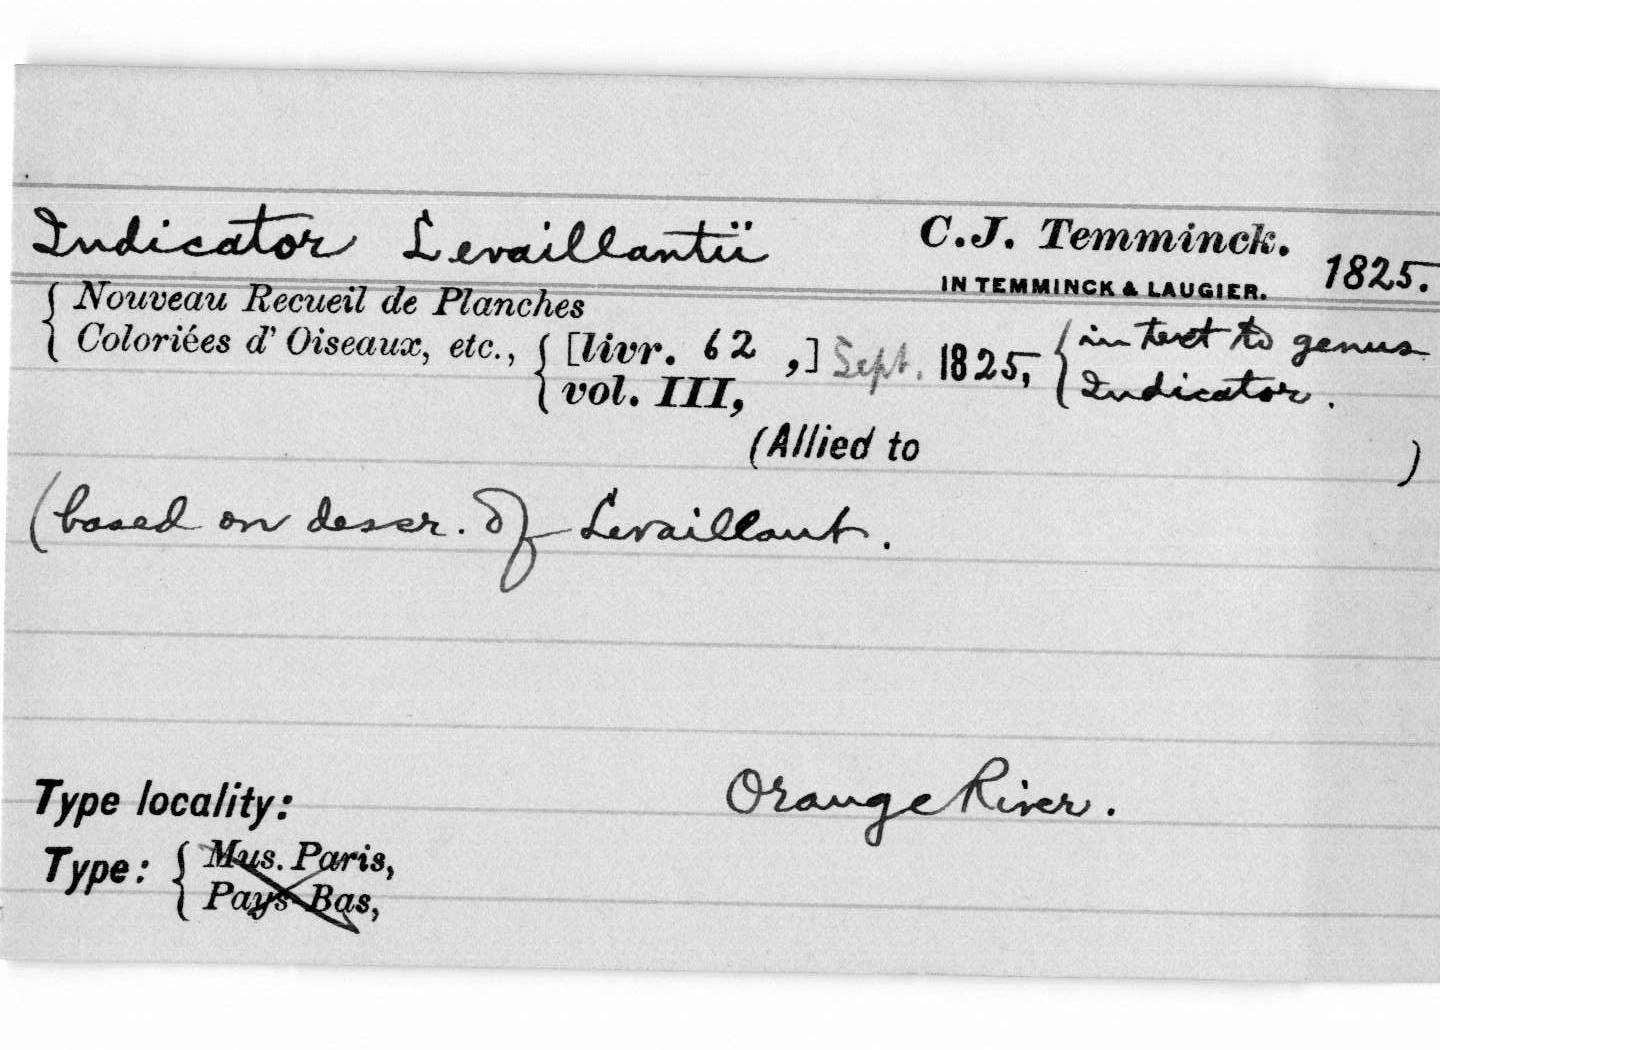 Indicator Levaillantii C.J. Temminck.
IN TEMMINCK & LAUGIER. 1825.
{ Nouveau Recueil de Planches
Coloriées d' Oiseaux, etc., { [livr. 62 ,] Sept. 1825, { in text to genus
vol. III, Indicator.
(Allied to )
(based on descr. of Levaillant.
Type locality: Orange River.
Type: { Mus. Paris,
Pays-Bas,